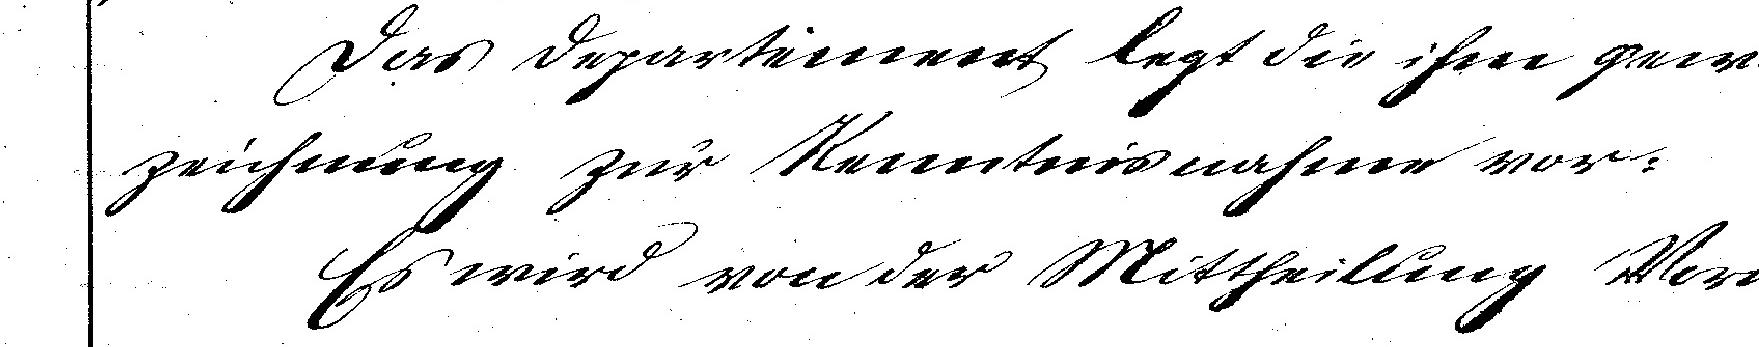 Das Departement legt die ihm gew
zeichnung zur Kenntnisnahme vor.
Es wird von der Mittheilung Vor